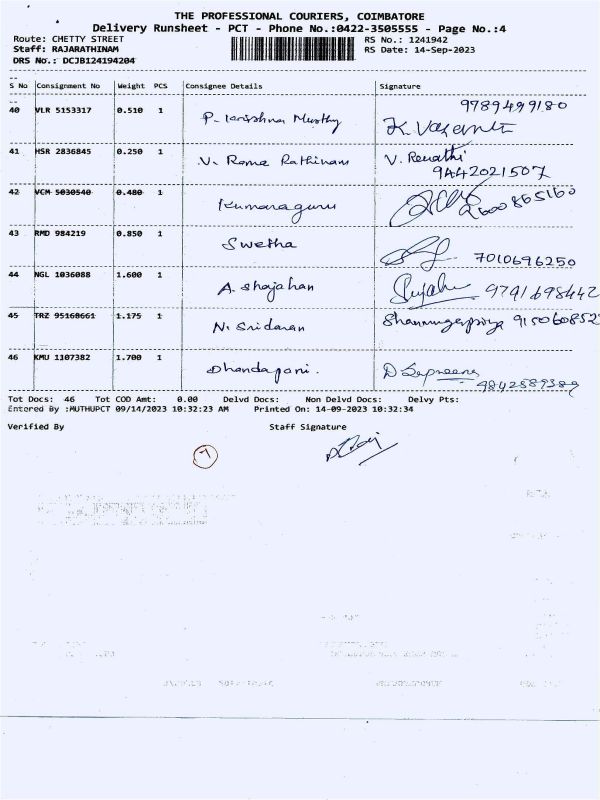 THE PROFESSIONAL COURIERS, COIMBATORE
Delivery Runsheet - PCT - Phone No.:0422-3505555 - Page No.:4
Route: CHETTY STREET RS No.: 1241942
Staff: RAJARATHINAM RS Date: 14-Sep-2023
DRS No.: DCJB124194204
S No Consignment No Weight PCS Consignee Details Signature
40 VLR 5153317 0.510 1 P. Krishna Murthy 9789499180
K. Vasanth
41 HSR 2836845 0.250 1 V. Rama Rathinam V. Revathi
9442021507
42 VCM 5030540 0.480 1 Kumaraguru 2600865160
43 RMD 984219 0.850 1 Swetha 7010696250
44 NGL 1036088 1.600 1 A. Shajahan 9791698442
45 TRZ 95160661 1.175 1 N. Sridaran Shanmugapriya 915060852
46 KMU 1107382 1.700 1 Dhandapani. D
9842589389
Tot Docs: 46 Tot COD Amt: 0.00 Delvd Docs: Non Delvd Docs: Delvy Pts:
Entered By :MUTHUPCT 09/14/2023 10:32:23 AM Printed On: 14-09-2023 10:32:34
Verified By Staff Signature
7